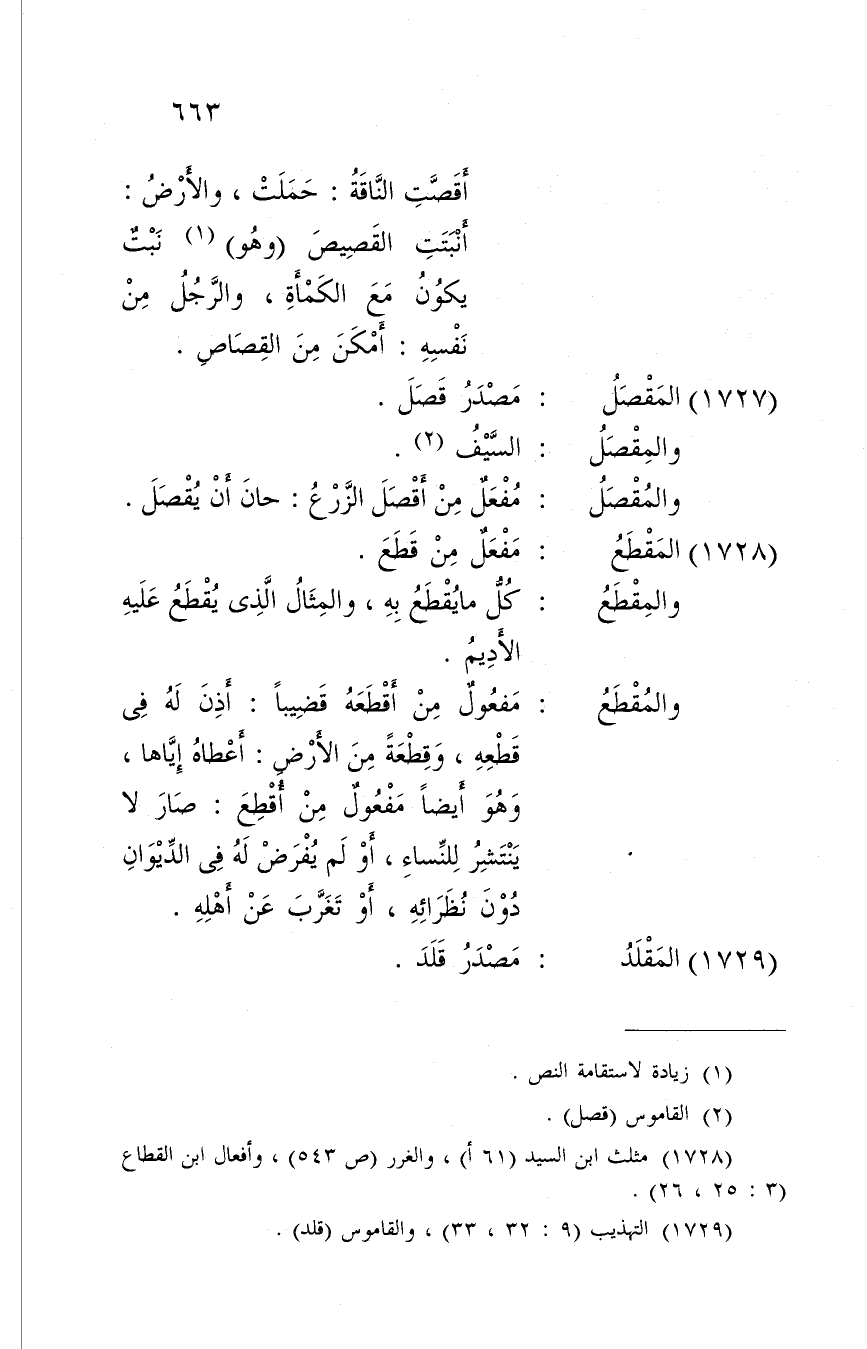 ٦٦٣
أَقَصَّتِ النَّاقَةُ : حَمَلَتْ ، والأَرْضُ :
أَنْبَتَتِ القَصِيصَ (وهُو) (١) نَبْتٌ
يكوُنُ مَعَ الكَمْأَةِ ، والرَّجُلُ مِنْ
نَفْسِهِ : أَمْكَنَ مِنَ القِصَاصِ .
(١٧٢٧) المَقْصَلُ : مَصْدَرُ قَصَلَ .
والمِقْصَلُ : السَّيْفُ (٢) .
والمُقْصَلُ : مُفْعَلٌ مِنْ أَقْصَلَ الزَّرْعُ : حانَ أَنْ يُقْصَلَ .
(١٧٢٨) المَقْطَعُ : مَفْعَلٌ مِنْ قَطَعَ .
والمِقْطَعُ : كُلُّ مايُقْطَعُ بِهِ ، والمِثَالُ الَّذِى يُقْطَعُ عَلَيهِ
الأَدِيمُ .
والمُقْطَعُ : مَفعُولٌ مِنْ أَقْطَعَهُ قَضِيباً : أَذِنَ لَهُ فِى
قَطْعِهِ ، وَقِطْعَةً مِنَ الأَرْضِ : أَعْطاهُ إِيَّاها ،
وَهُوَ أَيضاً مَفْعُولٌ مِنْ أُقْطِعَ : صَارَ لا
يَنْتَشِرُ لِلنِّساءِ ، أَوْ لَم يُفْرَضْ لَهُ فِى الدِّيْوَانِ
دُوْنَ نُظَرَائِهِ ، أَوْ تَغَرَّبَ عَنْ أَهْلِهِ .
(١٧٢٩) المَقْلَدُ : مَصْدَرُ قَلَدَ .
(١) زيادة لاستقامة النص .
(٢) القاموس (قصل) .
(١٧٢٨) مثلث ابن السيد (٦١ أ) ، والغرر (ص ٥٤٣) ، وأفعال ابن القطاع
(٣ : ٢٥ ، ٢٦) .
(١٧٢٩) التهذيب (٩ : ٣٢ ، ٣٣) ، والقاموس (قلد) .